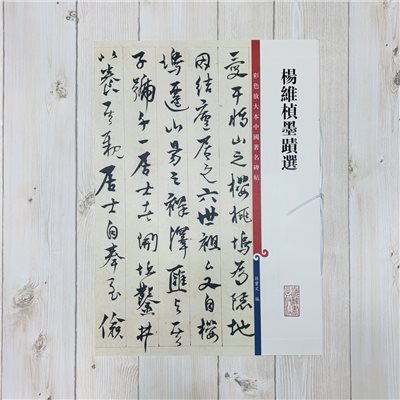 楊維楨墨蹟選
彩色放大本中國著名碑帖
孫寶文 編
干將山之櫻桃塢為隱地
因結廬居之六世祖公又自櫻
塢遷山之澤匯
子號千一居士開址鑿井
以養其親居士自奉至儉